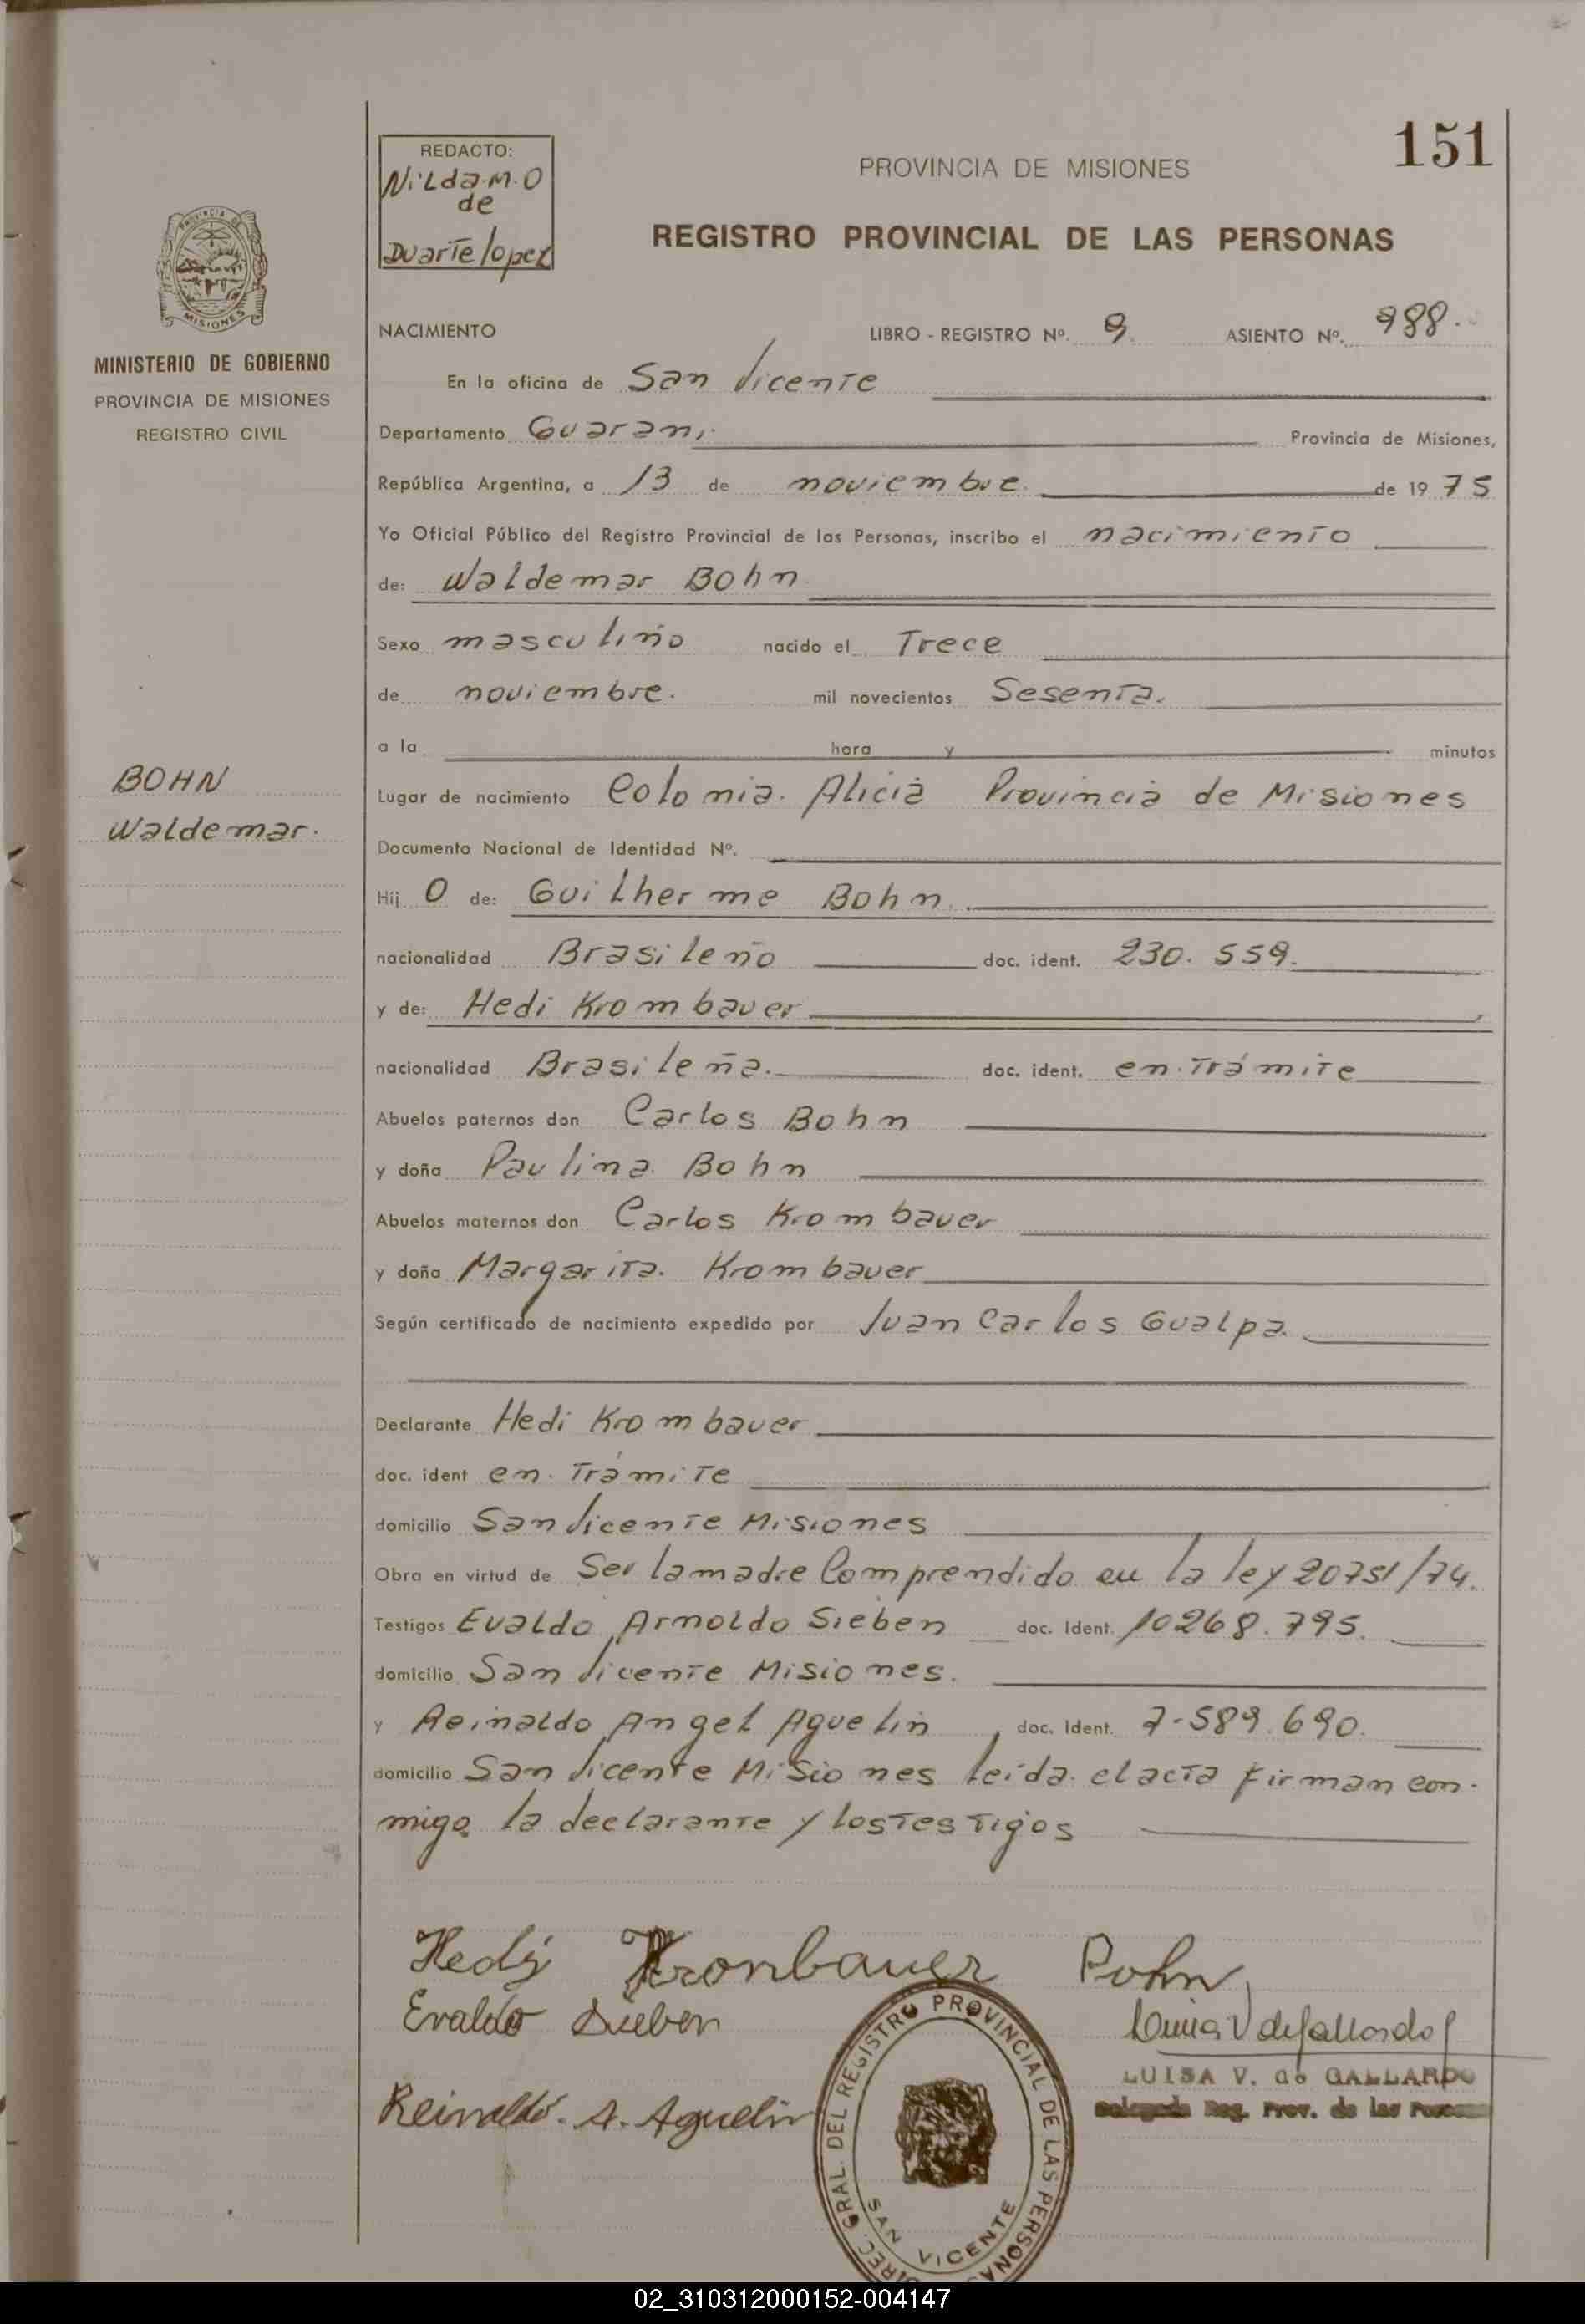 151
REDACTO:
Nilda.M.O
de
Duarte lopez
PROVINCIA DE MISIONES
REGISTRO PROVINCIAL DE LAS PERSONAS
MISIONES
MINISTERIO DE GOBIERNO
PROVINCIA DE MISIONES
REGISTRO CIVIL
NACIMIENTO LIBRO - REGISTRO Nº. 9. ASIENTO Nº. 988.
En la oficina de San Vicente
Departamento Guarani. Provincia de Misiones,
República Argentina, a 13 de noviembre. de 19 75
Yo Oficial Público del Registro Provincial de las Personas, inscribo el nacimiento
de: Waldemar Bohn
Sexo masculino nacido el Trece
de noviembre. mil novecientos Sesenta.
a la hora y minutos
BOHN
Waldemar.
Lugar de nacimiento Colonia. Alicia Provincia de Misiones
Documento Nacional de Identidad Nº.
Hij O de: Guilherme Bohn.
nacionalidad Brasileño doc. ident. 230.559.
y de: Hedi Krombauer
nacionalidad Brasileña. doc. ident. en tràmite
Abuelos paternos don Carlos Bohn
y doña Paulina Bohn
Abuelos maternos don Carlos Krombauer
y doña Margarita. Krombauer
Según certificado de nacimiento expedido por Juan Carlos Gualpa.
Declarante Hedi Krombauer
doc. ident en. Tràmite
domicilio San Vicente Misiones
Obra en virtud de Ser la madre Comprendido en la ley 20751/74.
Testigos Evaldo Arnoldo Sieben doc. Ident. 10268.795.
domicilio San Vicente Misiones.
y Reinaldo Angel Aguelin, doc. Ident. 7.589.690.
domicilio San Vicente Misiones leida. el acta firman con-
migo la declarante y los testigos
Hedy Kronbauer Bohn
Evaldo Sieben
Luisa V de Gallardo
LUISA V. de GALLARDO
Delegada Reg. Prov. de las Personas
Reinaldo. A. Aguelin
DIREC. GRAL. DEL REGISTRO PROVINCIAL DE LAS PERSONAS
SAN VICENTE
02_310312000152-004147